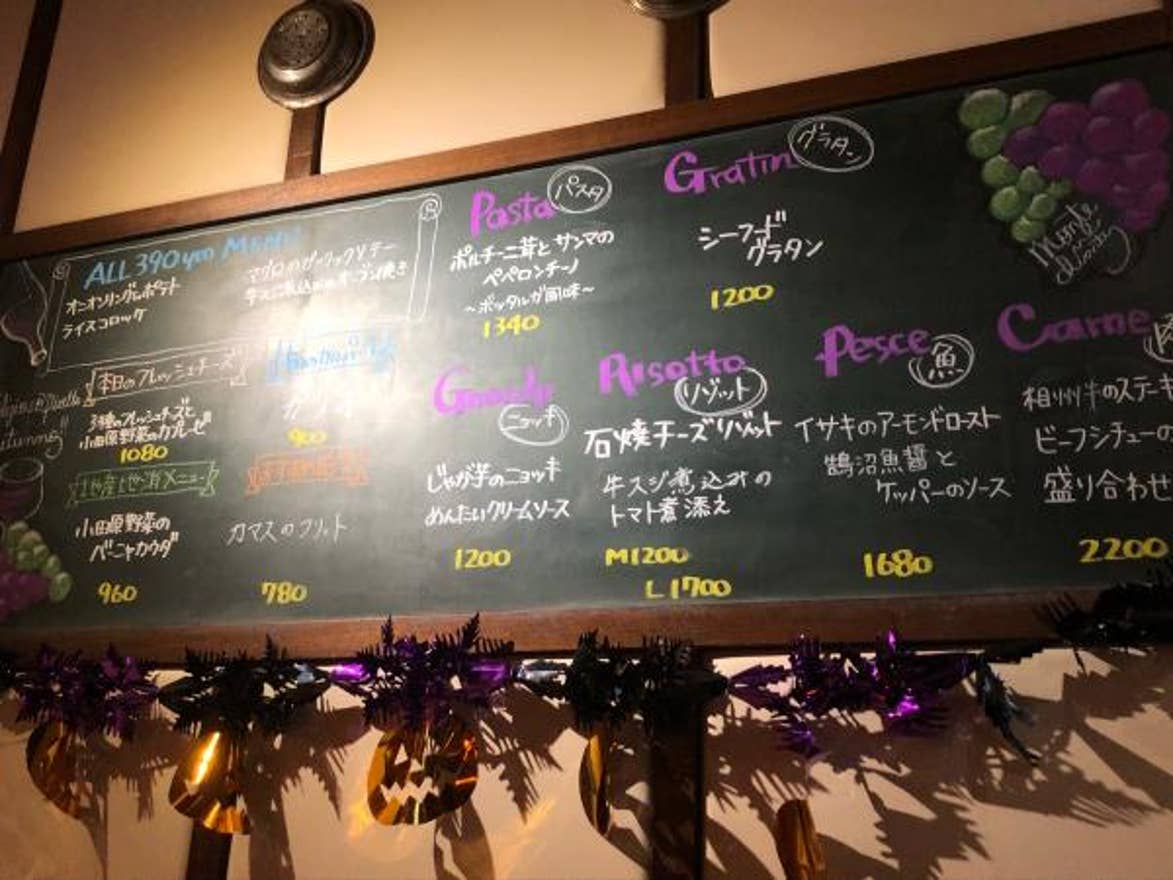 ALL 390yen MENU
オニオンリング&ポテト
ライスコロッケ
マグロのガーリックソテー
Pasta パスタ
ポルチーニ茸とサンマの
ペペロンチーノ
~ボッタルガ風味~
1340
Gratin グラタン
シーフード
グラタン
1200
本日のフレッシュチーズ
3種のフレッシュチーズと
小田原野菜のカプレーゼ
1080
900
地産地消メニュー
小田原野菜の
バーニャカウダ
960
カマスのフリット
780
ニョッキ
じゃが芋のニョッキ
めんたいクリームソース
1200
Risotto
リゾット
石焼チーズリゾット
牛スジ煮込みの
トマト煮添え
M1200
L1700
Pesce
魚
イサキのアーモンドロースト
鵠沼魚醤と
ケッパーのソース
1680
Carne
相州牛のステーキ
ビーフシチューの
盛り合わせ
2200